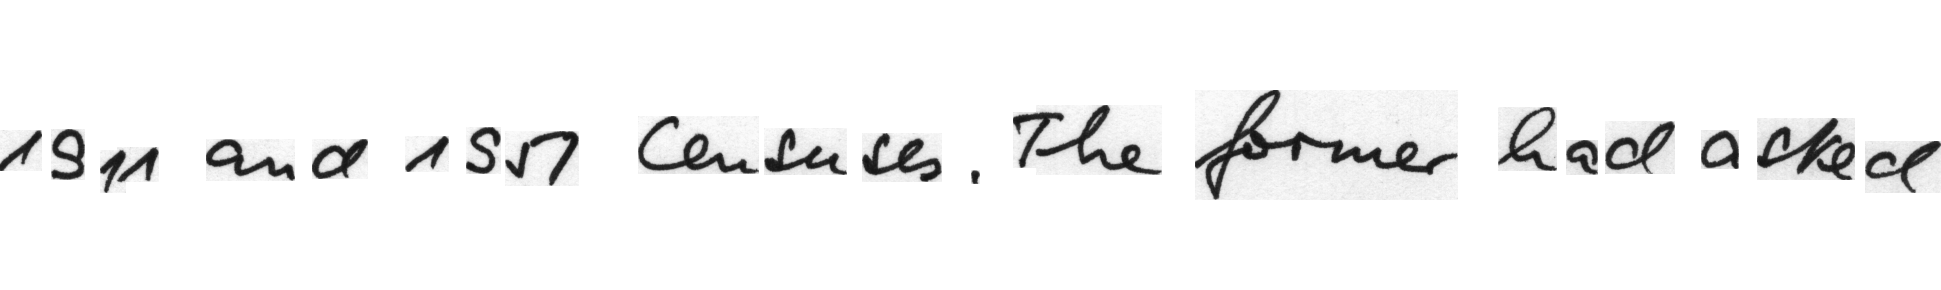 1911 and 1951 Censuses. The former had asked